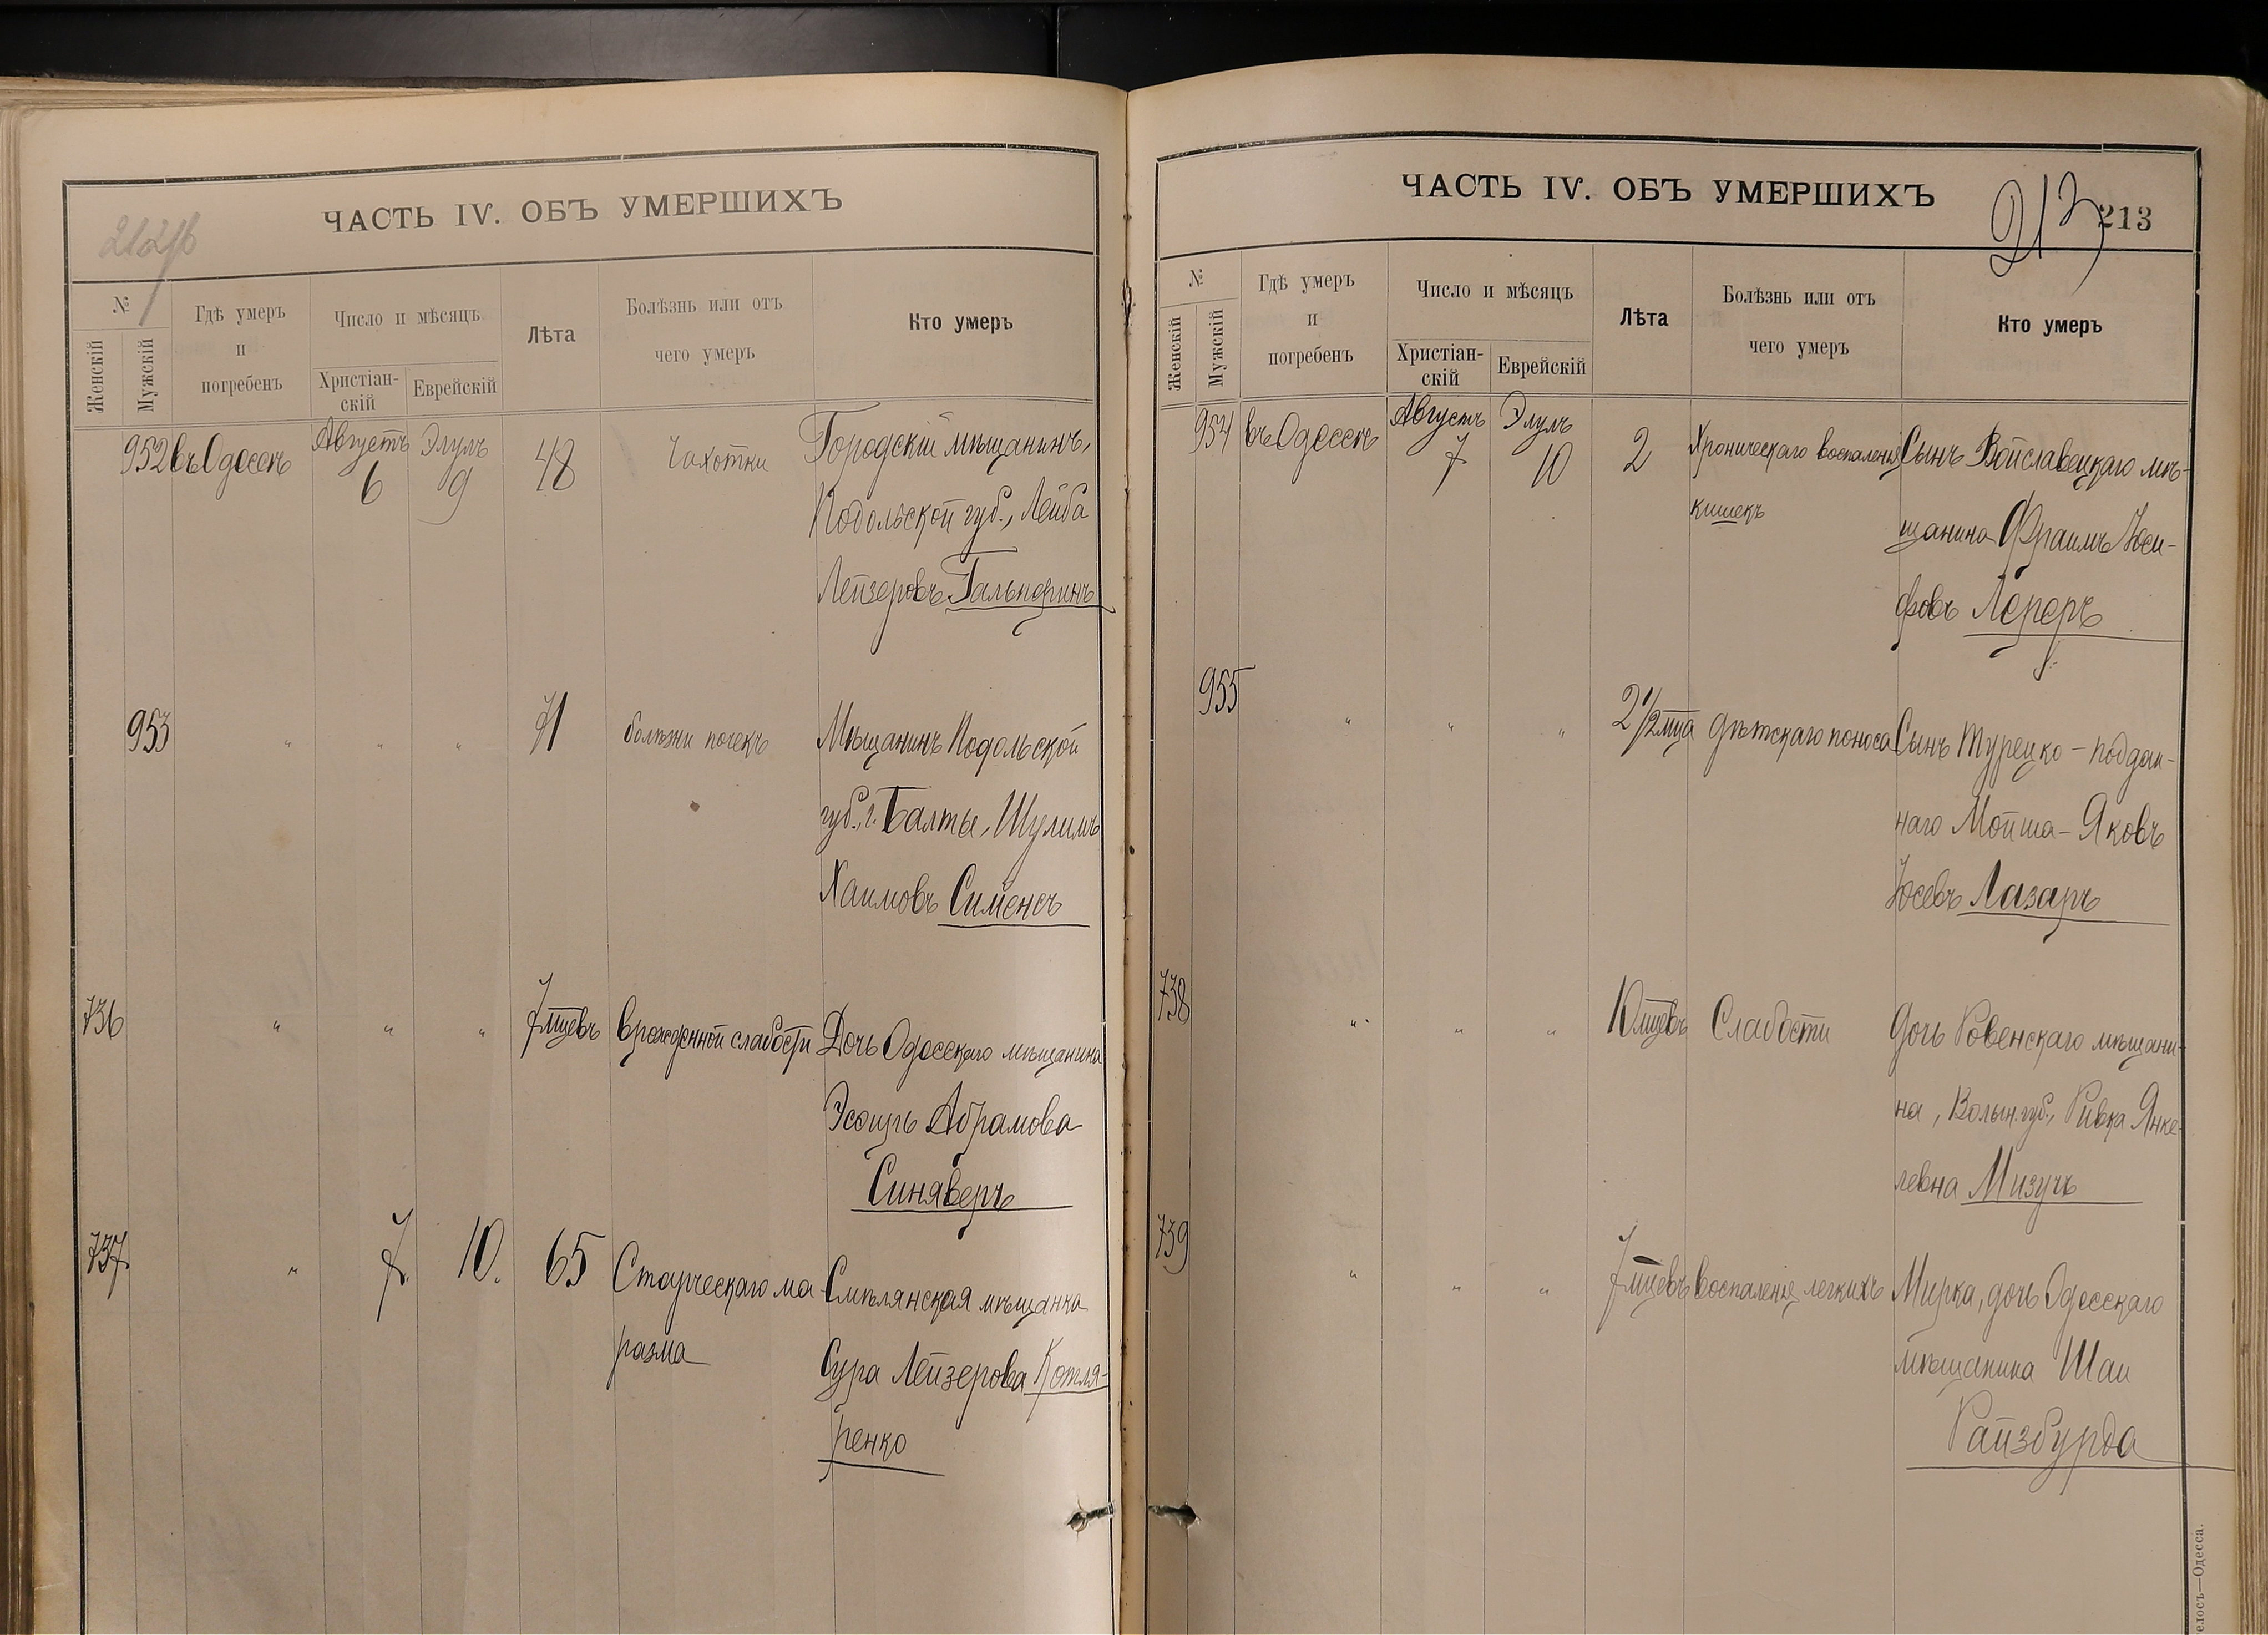 ЧАСТЬ IV. ОБЪ УМЕРШИХЪ
212об
№
Женскій
Мужскій
Гдѣ умеръ
и
погребенъ
Число и мѣсяцъ
Христіан-
скій
Еврейскій
Лѣта
Болѣзнь или отъ
чего умеръ
Кто умеръ
952 въ Одессѣ Августъ Элулъ 48 Чахотки Городскій мѣщанинъ,
6 9 Подольской губ., Лейба
Лейзеровъ Гальперинъ
953 " " " 71 болѣзни почекъ Мѣщанинъ Подольской
губ., г. Балты, Шулимъ
Хаимовъ Сименсъ
736 " " " 7 мцевъ врожденной слабости Дочь Одесскаго мѣщанина
Эсѳирь Абрамова
Синяверъ
737 " 7. 10. 65 Старческаго ма- Смѣлянская мѣщанка
разма Сура Лейзерова Котля-
ренко
ЧАСТЬ IV. ОБЪ УМЕРШИХЪ
213
213
№
Женскій
Мужскій
Гдѣ умеръ
и
погребенъ
Число и мѣсяцъ
Христіан-
скій
Еврейскій
Лѣта
Болѣзнь или отъ
чего умеръ
Кто умеръ
954 въ Одессѣ Августъ Элулъ 2 Хроническаго воспаленія Сынъ Войславецкаго мѣ-
7 10 кишекъ щанина Фраимъ Іоси-
фовъ Лереръ
955 " " " 2 1/2 мца дѣтскаго поноса Сынъ Турецко-поддан-
наго Мойша-Яковъ
Іосевъ Лазаръ
738 " " " 10 мцевъ Слабости Дочь Ровенскаго мѣщани-
на, Волын. губ., Ривка Янке-
левна Мизучъ
739 " " " 7 мцевъ воспаленія легкихъ Мирка, дочь Одесскаго
мѣщанина Шаи
Райзбурда
елосъ—Одесса.